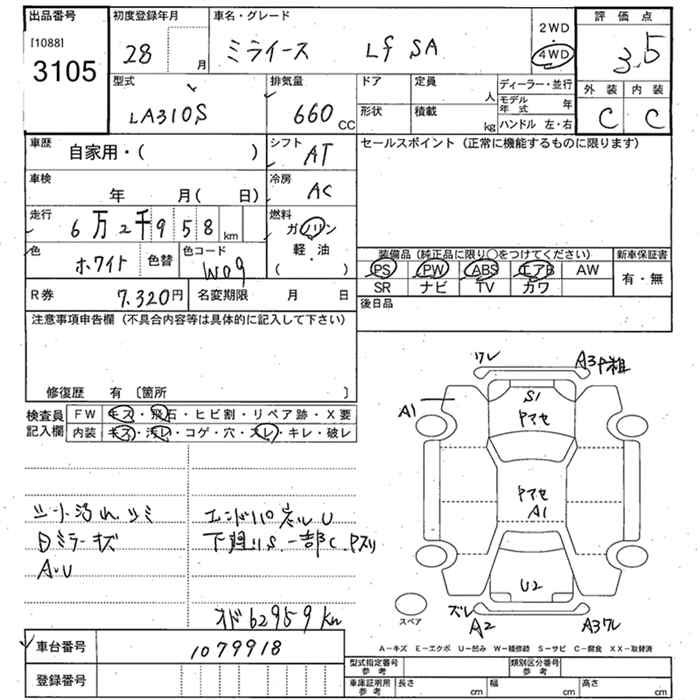 出品番号 初度登録年月 車名・グレード 2WD 評価点
[1088] 28 月 ミライース Lf SA ・ 3.5
3105 4WD
型式 排気量 ドア 定員 ディーラー・並行 外装 内装
LA310S 660 CC 人 モデル年式 年 C C
形状 積載 kg ハンドル 左・右
車歴 自家用・( ) シフト AT セールスポイント (正常に機能するものに限ります)
車検 年 月( 日) 冷房 AC
走行 6万2千958 km 燃料 ガソリン
軽・油
( )
色 ホワイト 色替 色コード W09
装備品 (純正品に限り○をつけてください) 新車保証書
PS PW ABS エアB AW 有・無
SR ナビ TV カワ
R券 7,320円 名変期限 月 日 後日品
注意事項申告欄 (不具合内容等は具体的に記入して下さい)
修復歴 有 〔箇所 〕
検査員記入欄 FW キズ・飛石・ヒビ割・リペア跡・X要
内装 キズ・汚レ・コゲ・穴・スレ・キレ・破レ
ワレ A3
A1 S1
アマセ
アマセ
A1
U2
ズレ A2 A3ワレ
スペア
シート汚れ シミ
Bミラーキズ 下廻りS 一部C
A・U
オド62959Km
A−キズ E−エクボ U−凹み W−補修跡 S−サビ C−腐食 XX−取替済
車台番号 1079918
登録番号
型式指定番号 参考 類別区分番号 参考
車庫証明用 参考 長さ cm 幅 cm 高さ cm